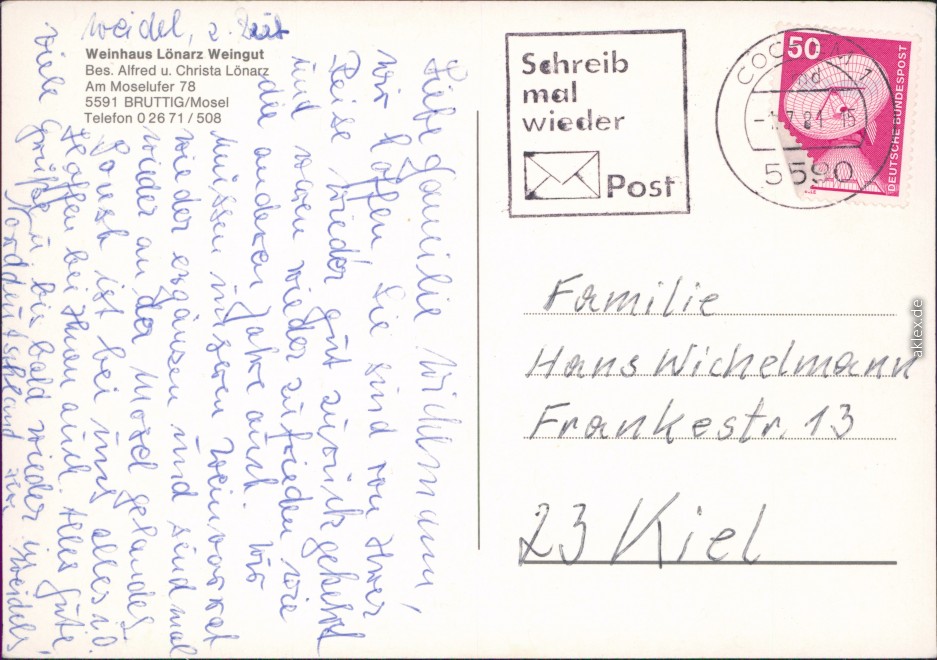 Weidel, z. Zeit
Weinhaus Lönarz Weingut
Bes. Alfred u. Christa Lönarz
Am Moselufer 78
5591 BRUTTIG/Mosel
Telefon 0 26 71 / 508
Liebe Familie Wichelmann,
wir hoffen Sie sind von Ihrer
Reise wieder gut zurück gekehrt
und waren wieder zufrieden wie
die anderen Jahre auch. Wir
müssen unseren Weinvorrat
wieder ergänzen und sind mal
wieder an der Mosel gelandet.
Sonst ist bei uns alles i.O.
Hoffen bei Ihnen auch. Alles Gute,
viele Grüße u. bis bald wieder in
Norddeutschland Weidels
Schreib
mal
wieder
Post
50
DEUTSCHE BUNDESPOST
COCHEM 1
5590
Familie
Hans Wichelmann
Frankestr. 13
23 Kiel
aklex.de